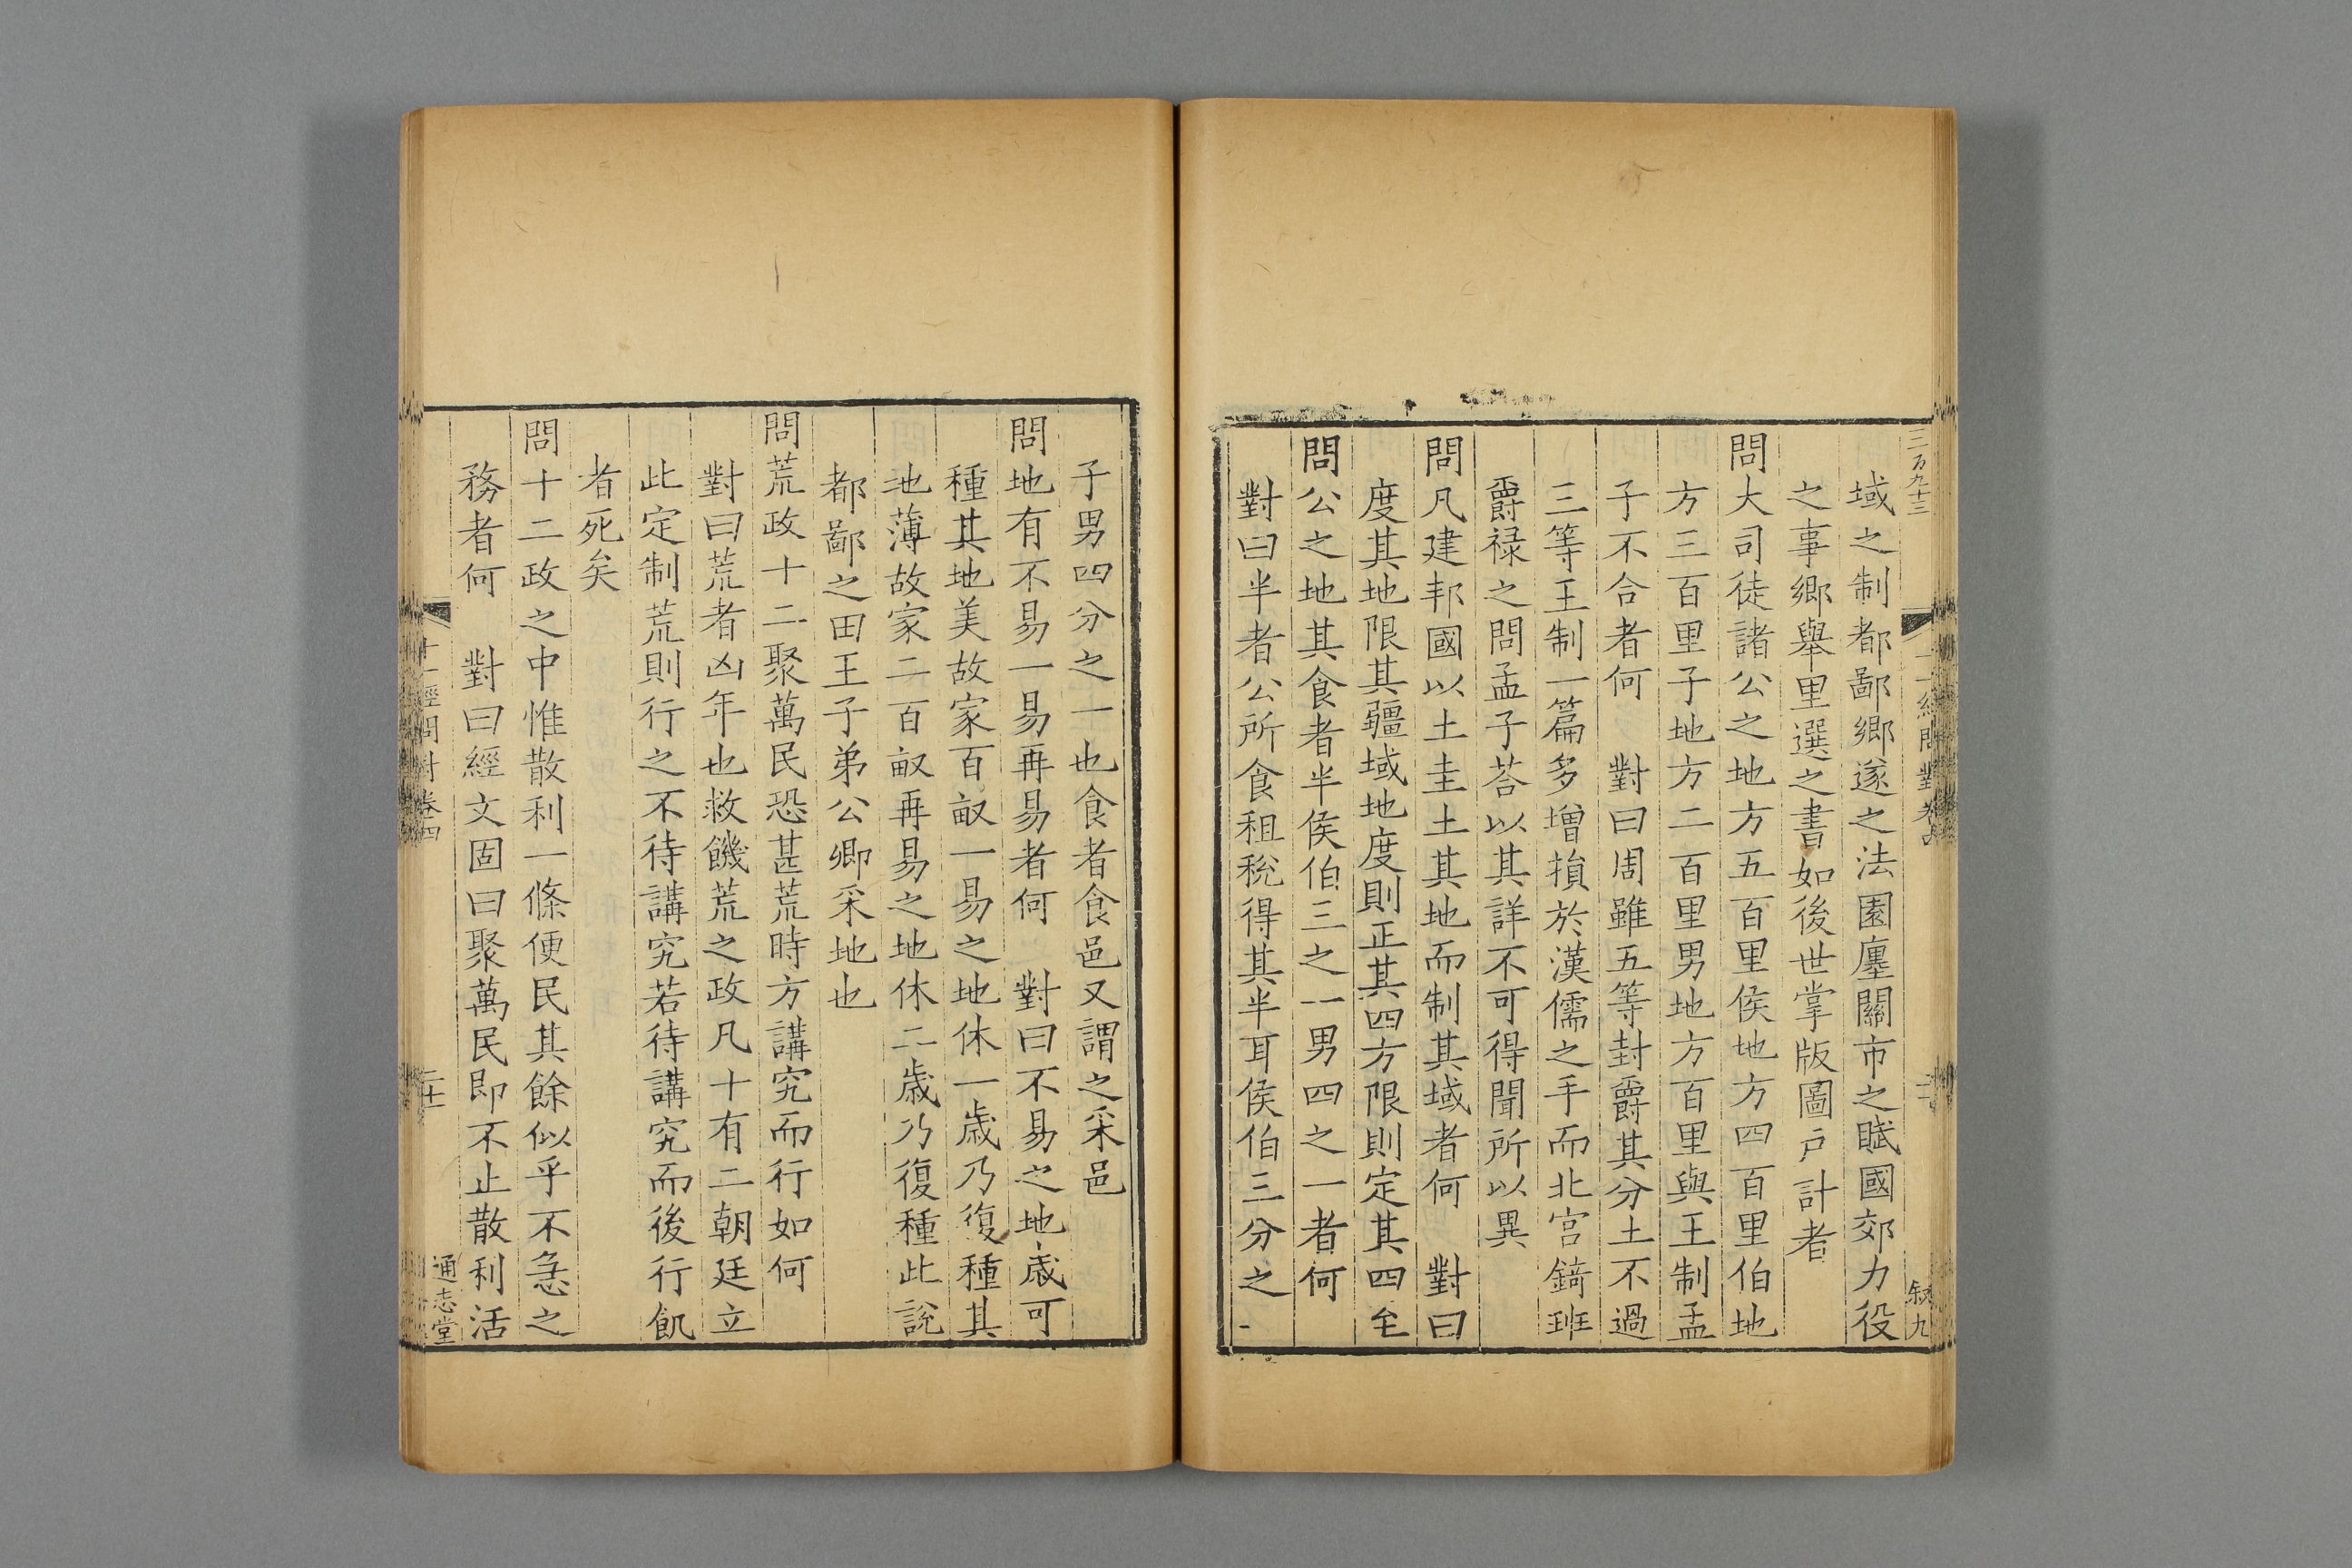 域之制都鄙鄉遂之法園廛關市之賦國郊力役
之事鄉舉里選之書如後世掌版圖戶計者
問大司徒諸公之地方五百里侯地方四百里伯地
方三百里子地方二百里男地方百里與王制孟
子不合者何　對曰周雖五等封爵其分土不過
三等王制一篇多增損於漢儒之手而北宮錡班
爵祿之問孟子荅以其詳不可得聞所以異
問凡建邦國以土圭土其地而制其域者何　對曰
度其地限其疆域地度則正其四方限則定其四至
問公之地其食者半侯伯三之一男四之一者何
對曰半者公所食租稅得其半耳侯伯三分之一
子男四分之一也食者食邑又謂之采邑
問地有不易一易再易者何　對曰不易之地歲可
種其地美故家百畝一易之地休一歲乃復種其
地薄故家二百畝再易之地休二歲乃復種此說
都鄙之田王子弟公卿采地也
問荒政十二聚萬民恐甚荒時方講究而行如何
對曰荒者凶年也救饑荒之政凡十有二朝廷立
此定制荒則行之不待講究若待講究而後行飢
者死矣
問十二政之中惟散利一條便民其餘似乎不急之
務者何　對曰經文固曰聚萬民即不止散利活
十一經問對卷四
二十
通志堂